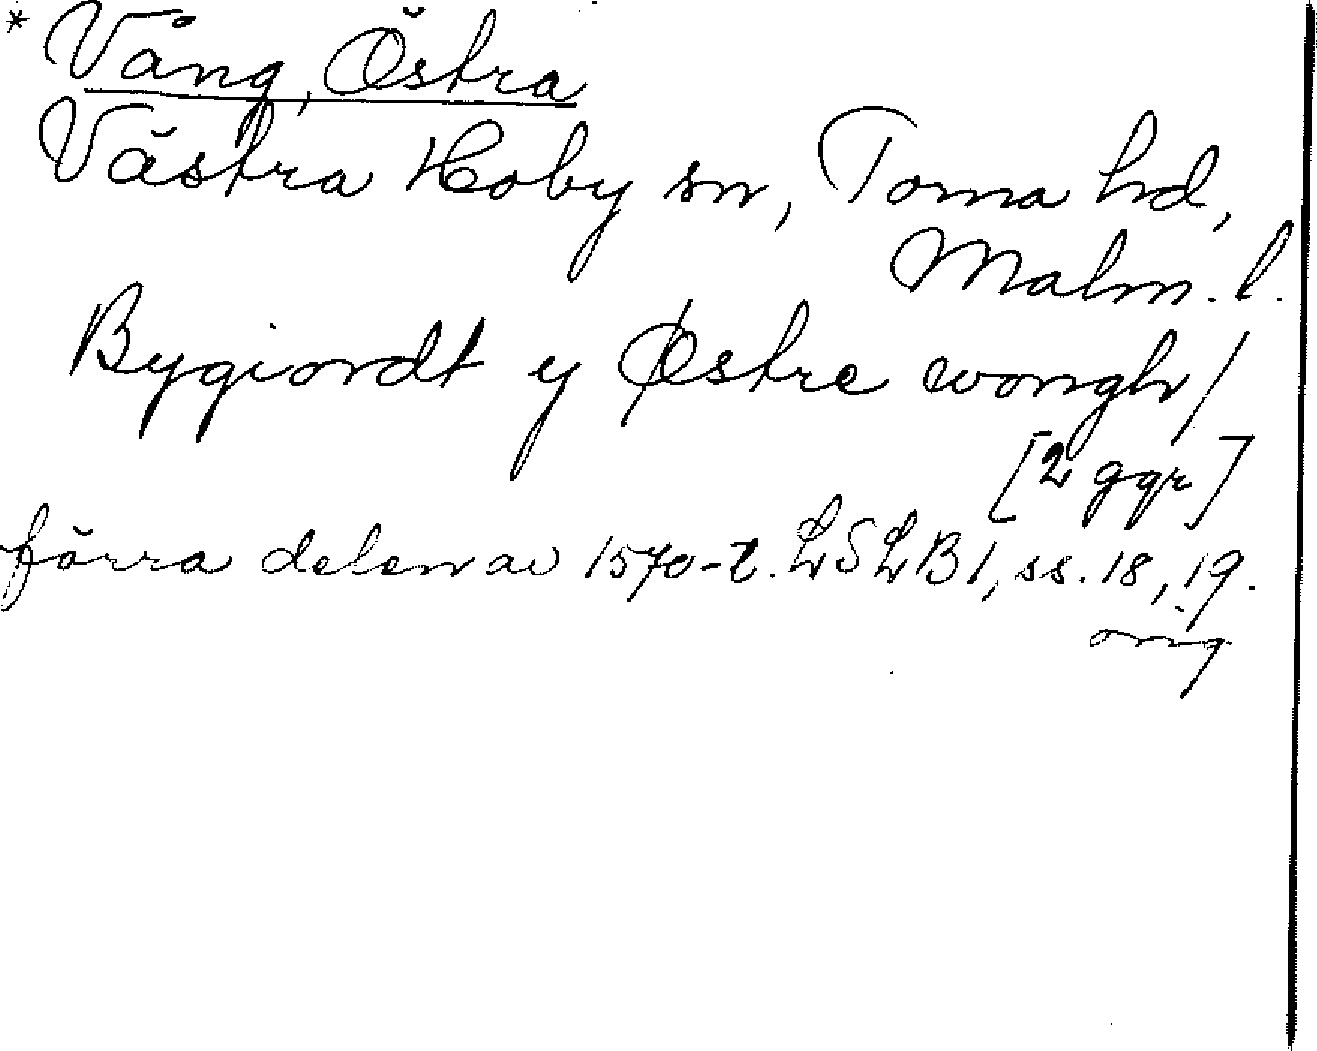 * Vång, Östra
Västra Hoby sn, Torna hd,
Malm. l.
Bygiordt y Østre wongh/
[2 ggr]
förra delen av 1570-t. LSLB 1, ss. 18, 19.
orig